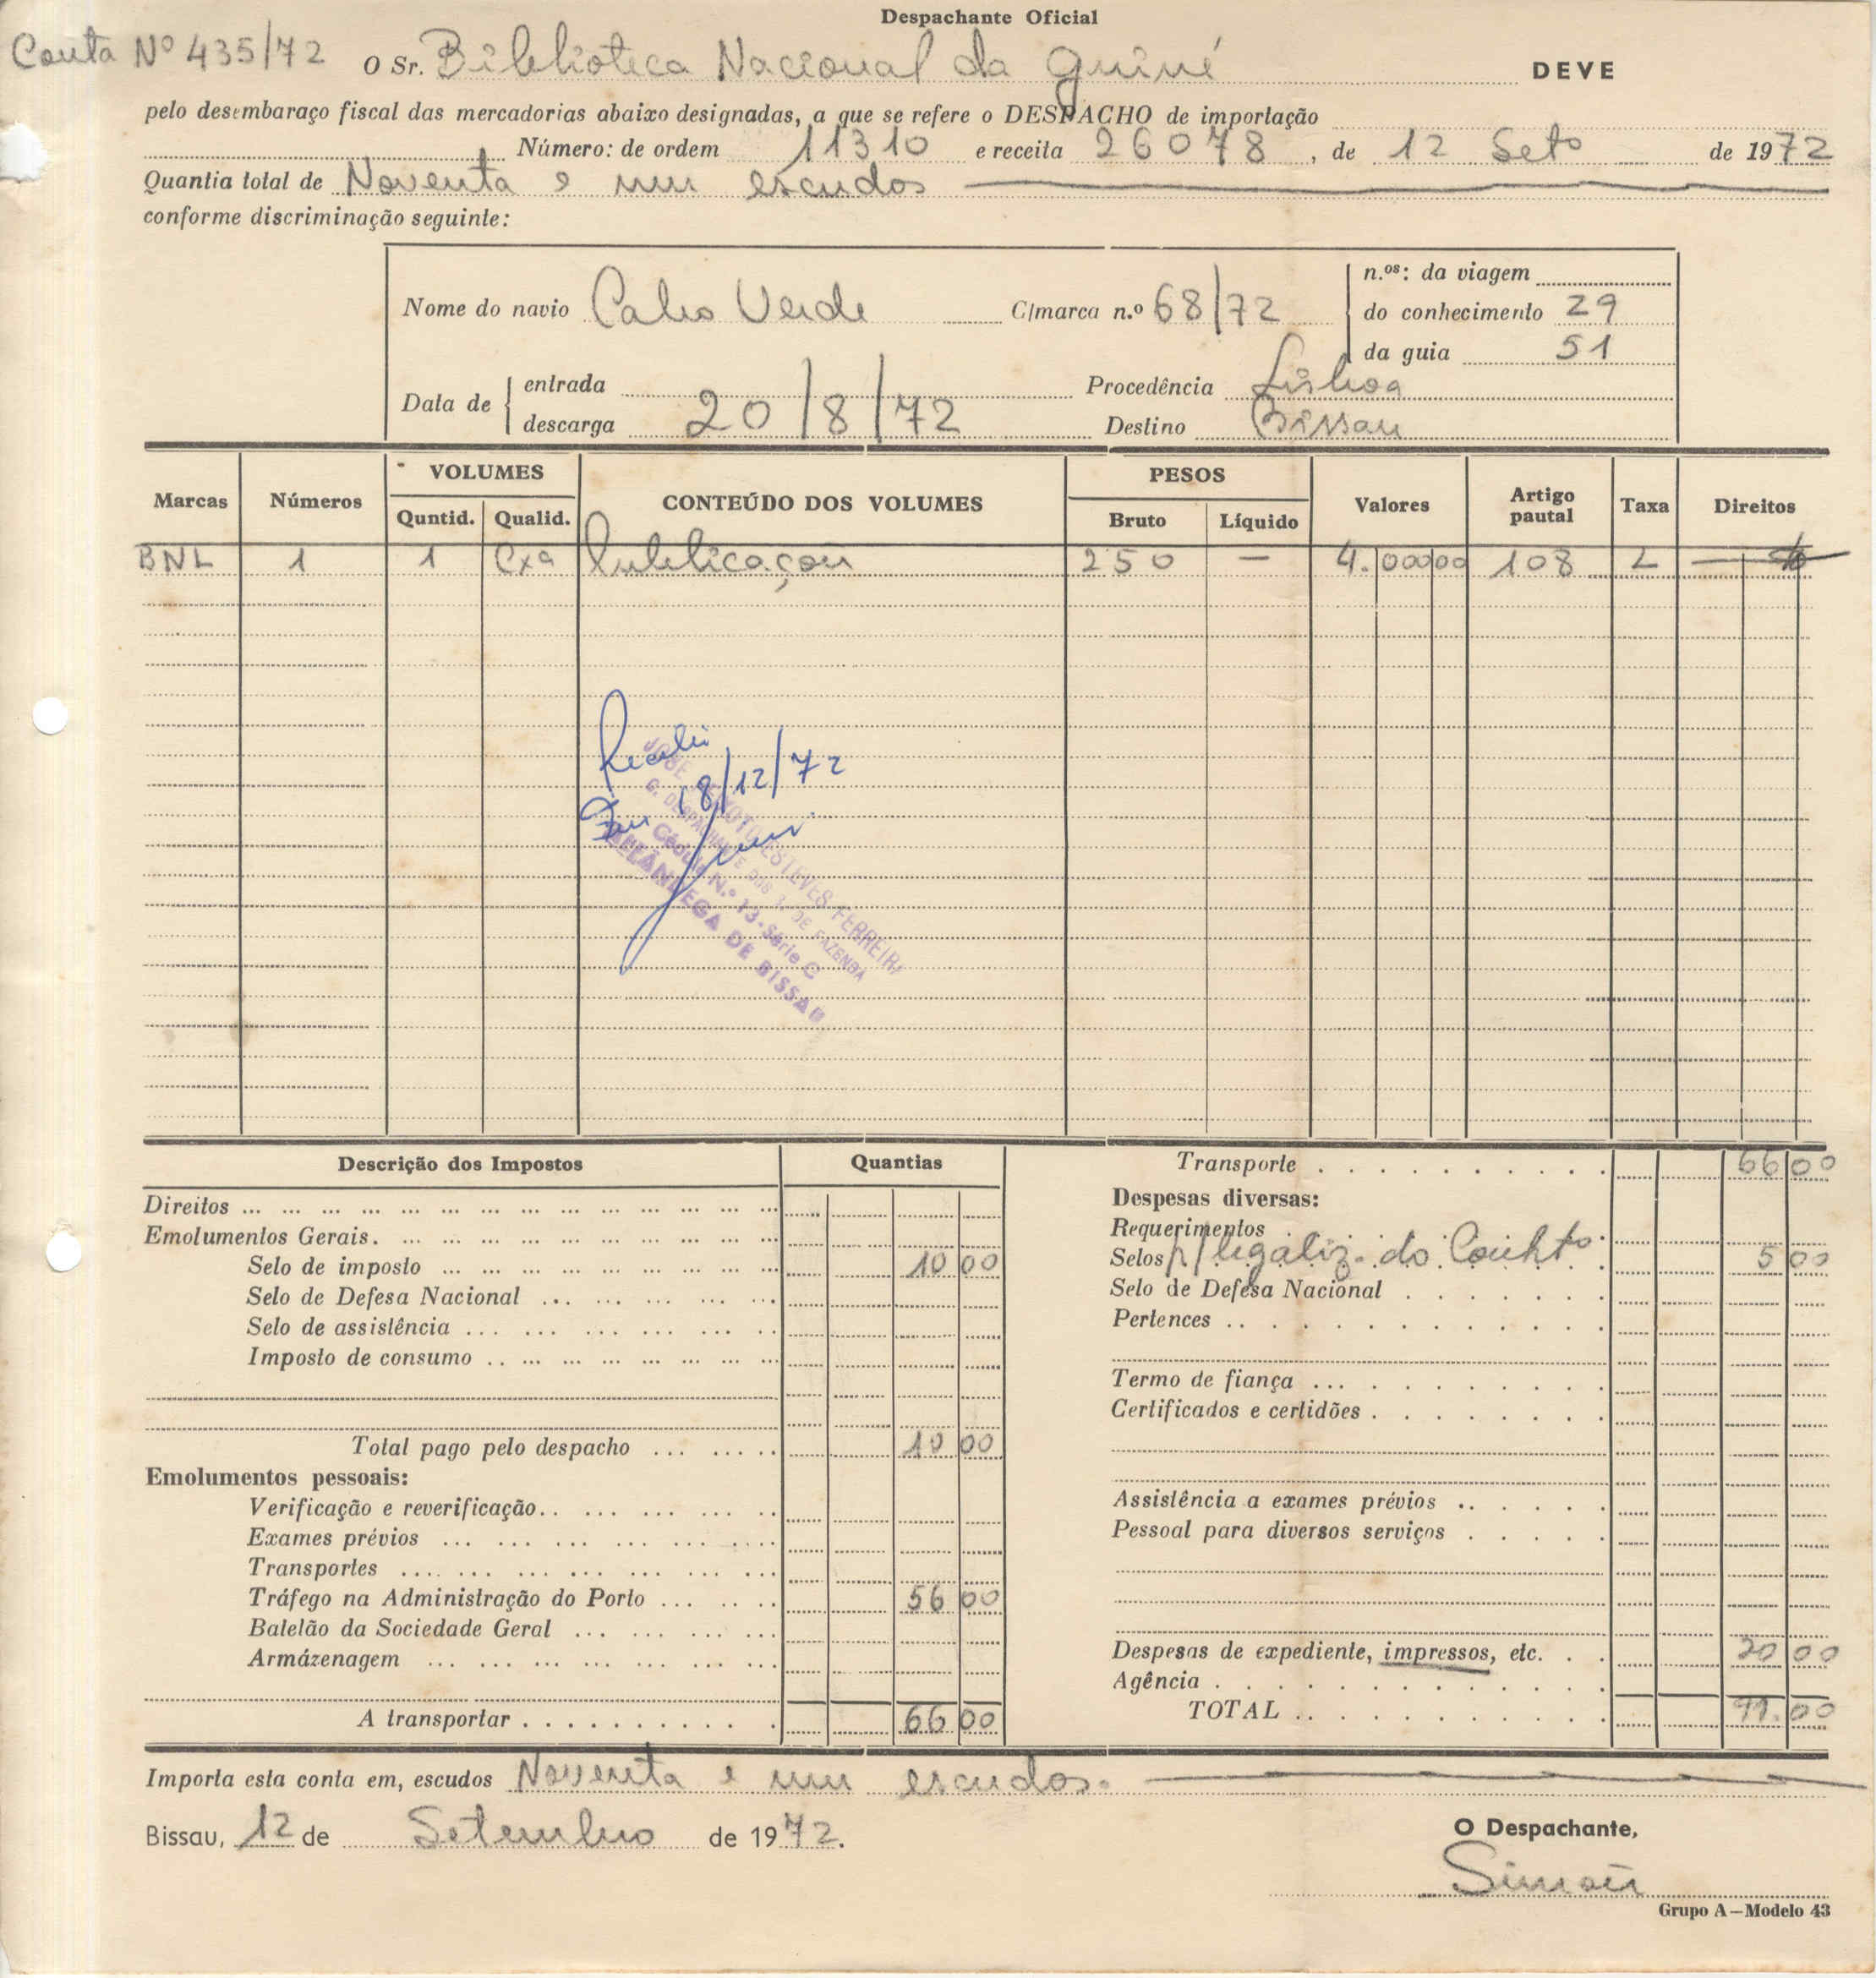 Despachante Oficial
Conta Nº 435/72 O Sr. Biblioteca Nacional da Guiné DEVE
pelo desembaraço fiscal das mercadorias abaixo designadas, a que se refere o DESPACHO de importação
Número: de ordem 11310 e receita 26078, de 12 Setº de 1972
Quantia total de Noventa e um escudos
conforme discriminação seguinte:
Nome do navio Cabo Verde C/marca n.º 68/72
n.os: da viagem
do conhecimento 29
da guia 51
Data de entrada
descarga 20/8/72
Procedência Lisboa
Destino Bissau
Marcas Números VOLUMES Quntid. Qualid. CONTEÚDO DOS VOLUMES PESOS Bruto Líquido Valores Artigo pautal Taxa Direitos
BNL 1 1 Cxa Publicações 250 — 4.00000 108 L —
Recebi
Em 18/12/72
JOSÉ PEIXOTO ESTEVES FERREIRA
C. DESPACHANTE DOS S. DE FAZENDA
Cédula N.º 13-Série C
ALFÂNDEGA DE BISSAU
Descrição dos Impostos Quantias
Direitos
Emolumentos Gerais.
Selo de imposto 10 00
Selo de Defesa Nacional
Selo de assistência
Imposto de consumo
Total pago pelo despacho 10 00
Emolumentos pessoais:
Verificação e reverificação
Exames prévios
Transportes
Tráfego na Administração do Porto 56 00
Batelão da Sociedade Geral
Armázenagem
A transportar 66 00
Transporte 66 00
Despesas diversas:
Requerimentos
Selos p/ legaliz. do Conhtº 5 00
Selo de Defesa Nacional
Pertences
Termo de fiança
Certificados e certidões
Assistência a exames prévios
Pessoal para diversos serviços
Despesas de expediente, impressos, etc. 20 00
Agência
TOTAL 91.00
Importa esta conta em, escudos Noventa e um escudos.
Bissau, 12 de Setembro de 1972.
O Despachante,
Simões
Grupo A — Modelo 43